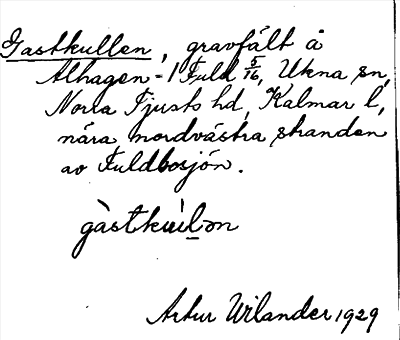 Gastkullen, gravfält å
Alhagen - 1 Fuld 5/16, Ukna sn,
Norra Tjusts hd, Kalmar l,
nära nordvästra stranden
av Fuldbosjön.
gàstkùl̲ən
Artur Wilander 1929